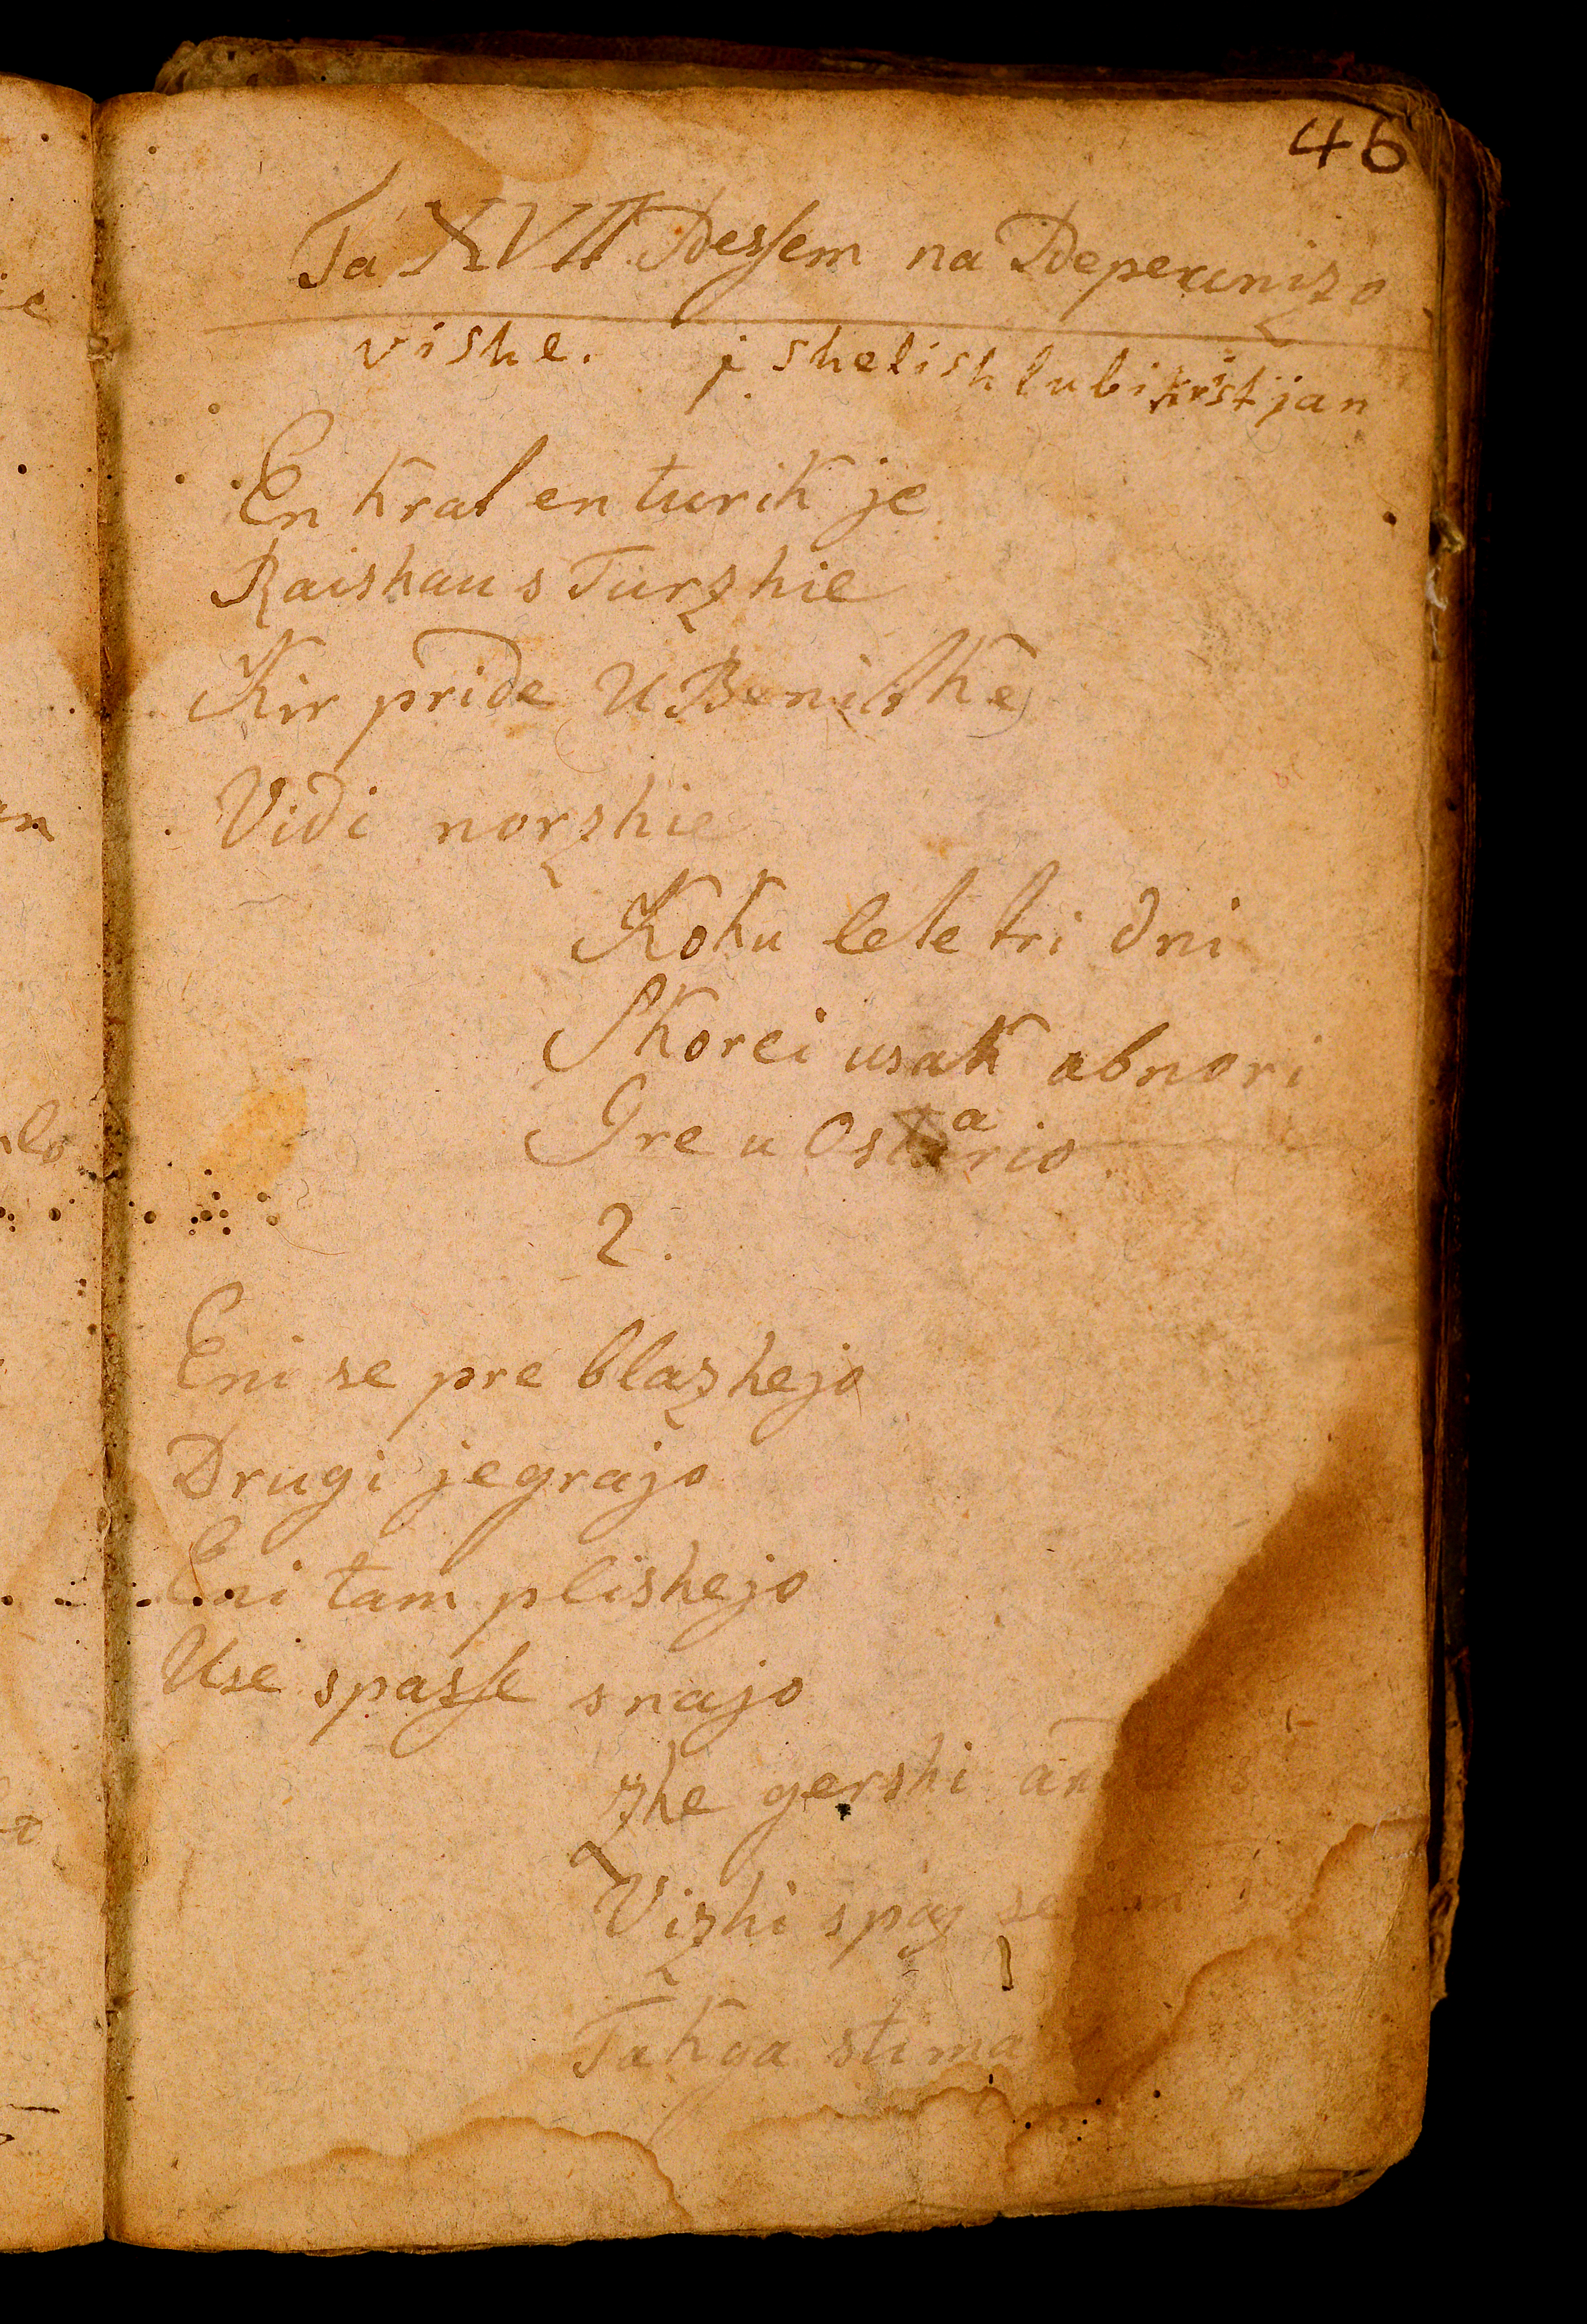 46
Ta XVII Pessem na Peperunizo
vishe. j shelish lubi kristjan
En kral en turik je
Raishau s Turzhie
Kir pride U Benetke
Vidi norzhie
Koku lete tri dni
Skorei usak abnori
Gre u Ostario
2.
Eni se pre blazhejo
Drugi jegrajo
Eni tam plishejo
Use spasse snajo
Zhe gershi
Vizhi spas
Tak ga stima